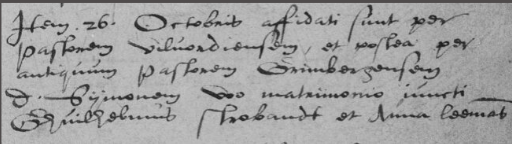 Item 26. Octobris affidati sunt per
pastorem vilvordiensem, et postea per
antiquum pastorem Grimbergensem
d. Symonem vero matrimonio juncti
Guilhelmus Strobandt et Anna Leemans